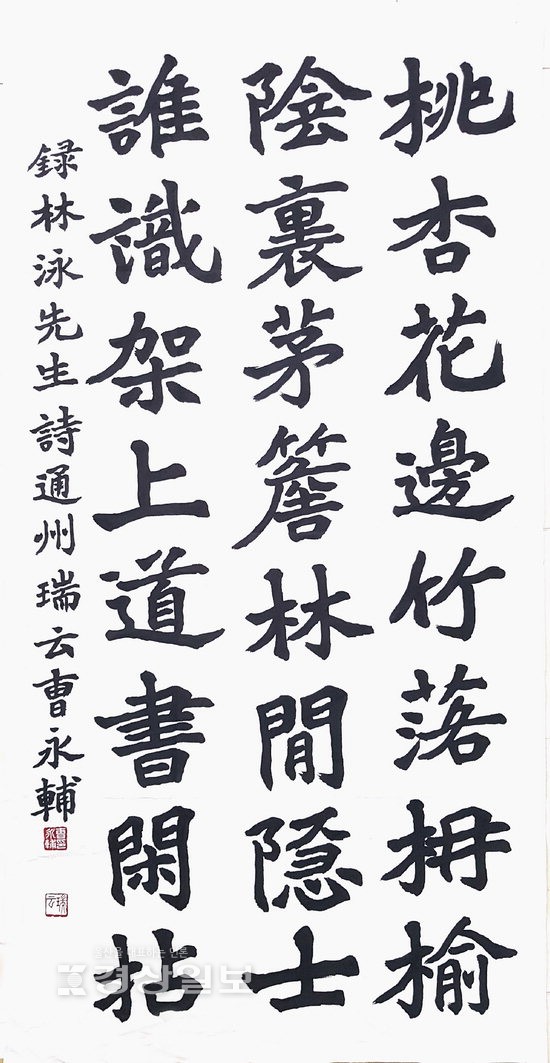 桃杏花邊竹落枏榆
陰裏茅簷林閒隐士
誰識架上道書閑拈
録林泳先生詩通州瑞云曹永輔
경상일보